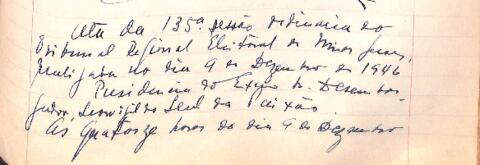 Ata da 135ª sessão ordinaria do
Tribunal Regional Eleitoral de Minas Geraes,
realizada no dia 9 de Dezembro de 1946
Presidencia do Exmo Sr. Desembar-
gador, Leovigildo Leal da Paixão.
As quatorze horas do dia 9 de Dezembro